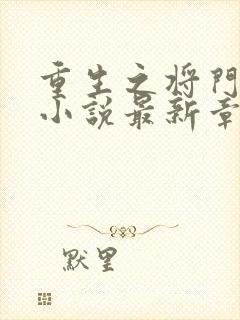 重生之将门
小说最新章
默里